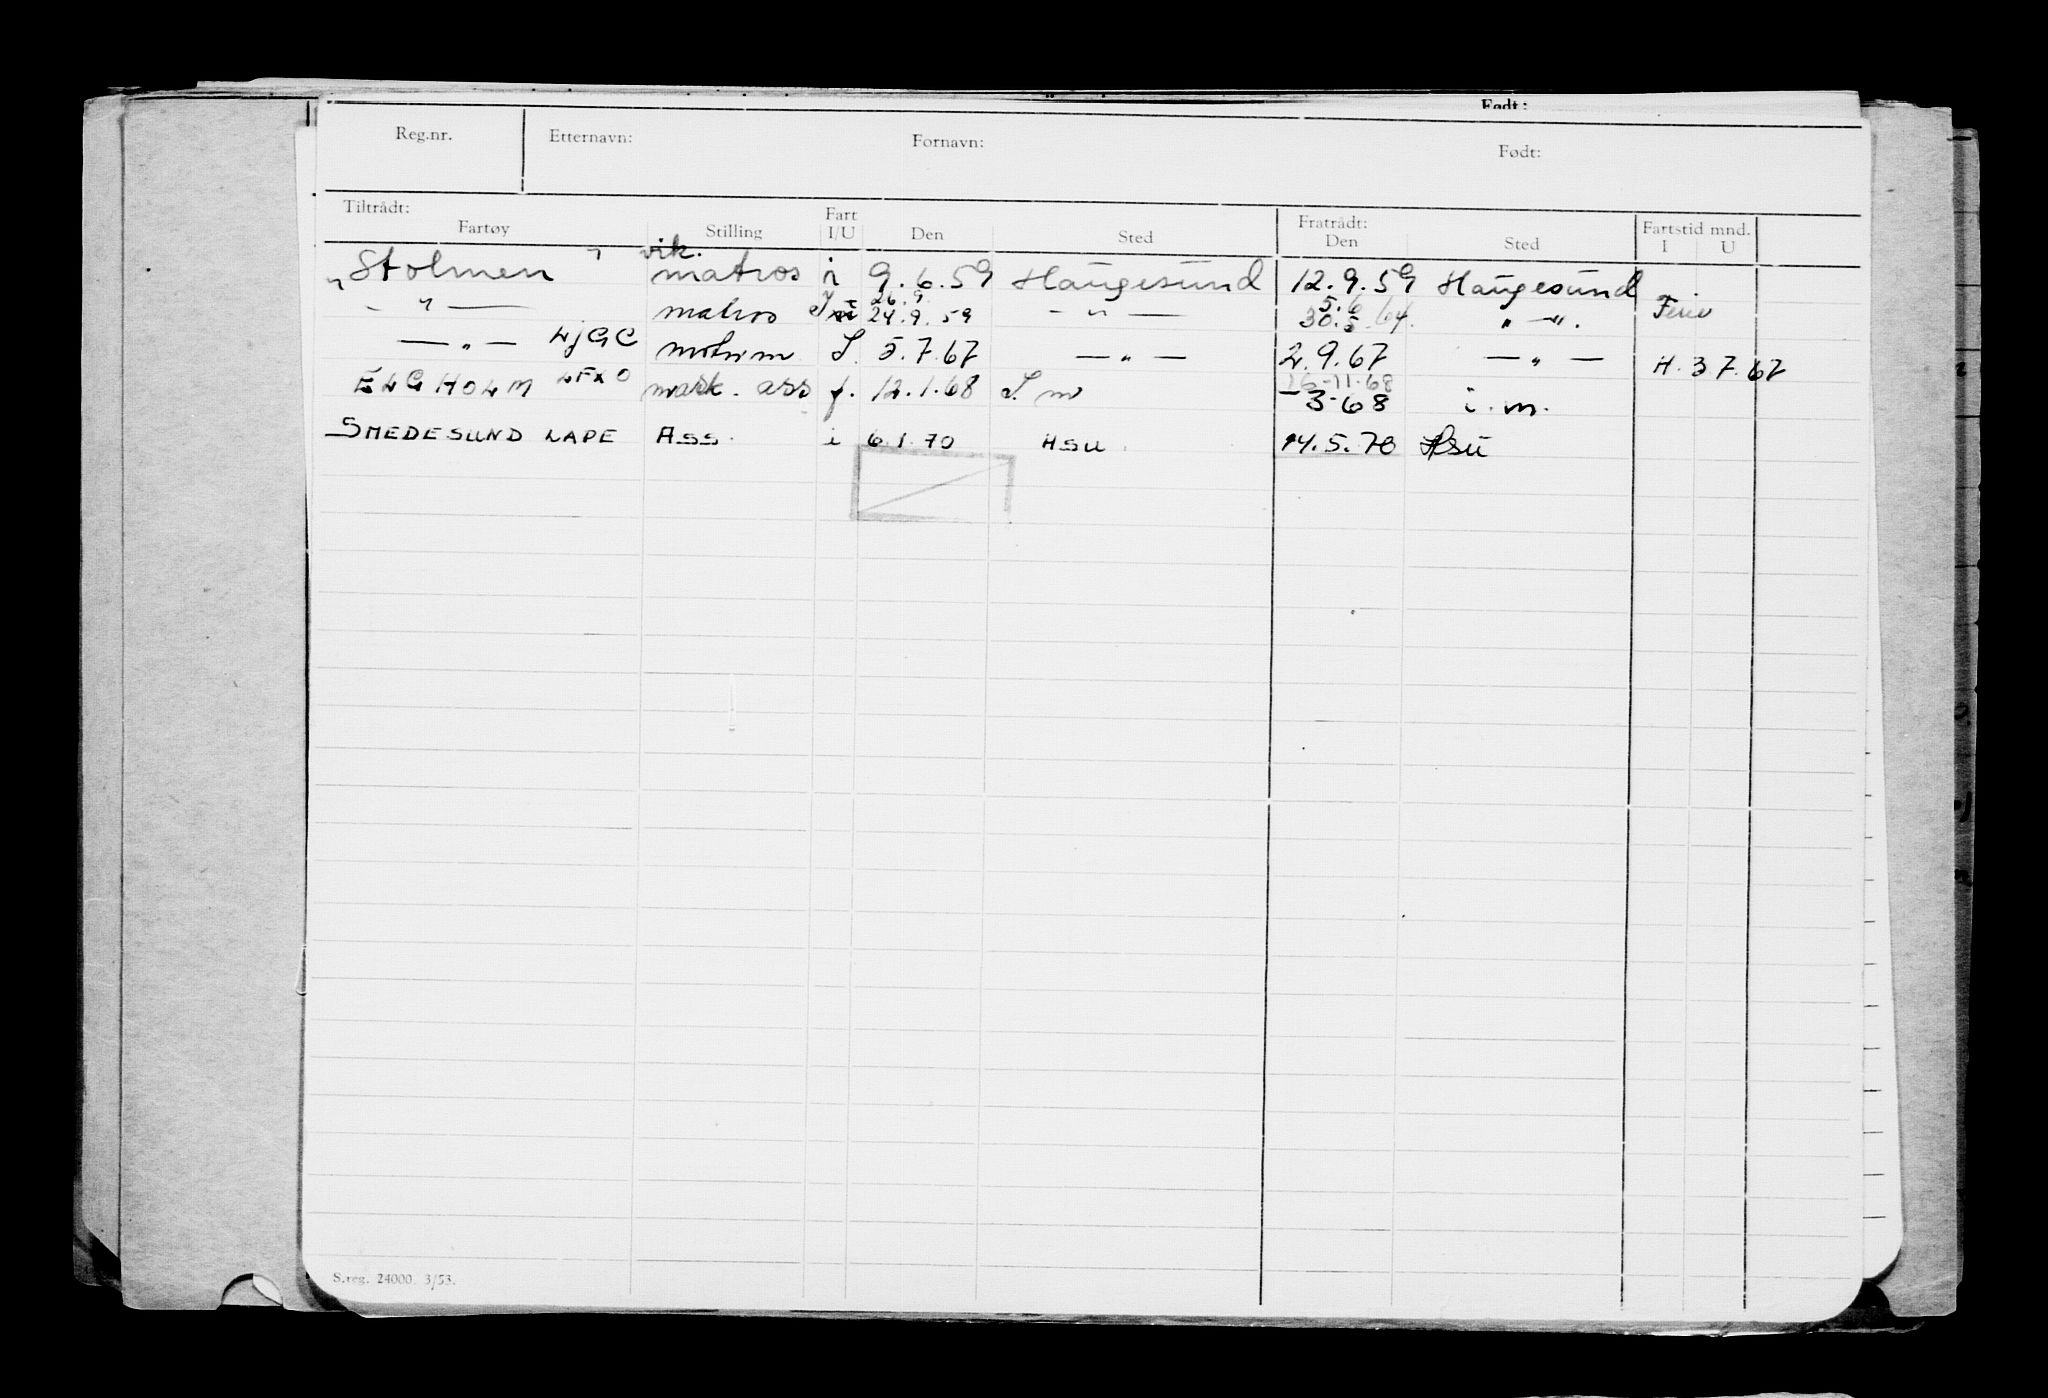 Født:
Reg.nr. Etternavn: Fornavn: Født:
Tiltrådt: Fratrådt: Fartstid mnd.
Fartøy Stilling Fart I/U Den Sted Den Sted I U
vik.
"Stolmen" matros i 9.6.59 Haugesund 12.9.59 Haugesund
26.9. 5.6
— " — matros I 24.9.59 — " — 30.5.64. " — ". Ferie
— " — LJGC motorm I. 5.7.67 — " — 2.9.67 — " — H. 3 7.67
16-11-68
ELGHOLM LFXO mask. ass f. 12.1.68 I. m -3-68 i.m.
SMEDESUND LAPE Ass. i 6.1.70 HSU 14.5.70 Hsu
S.reg. 24000. 3/53.